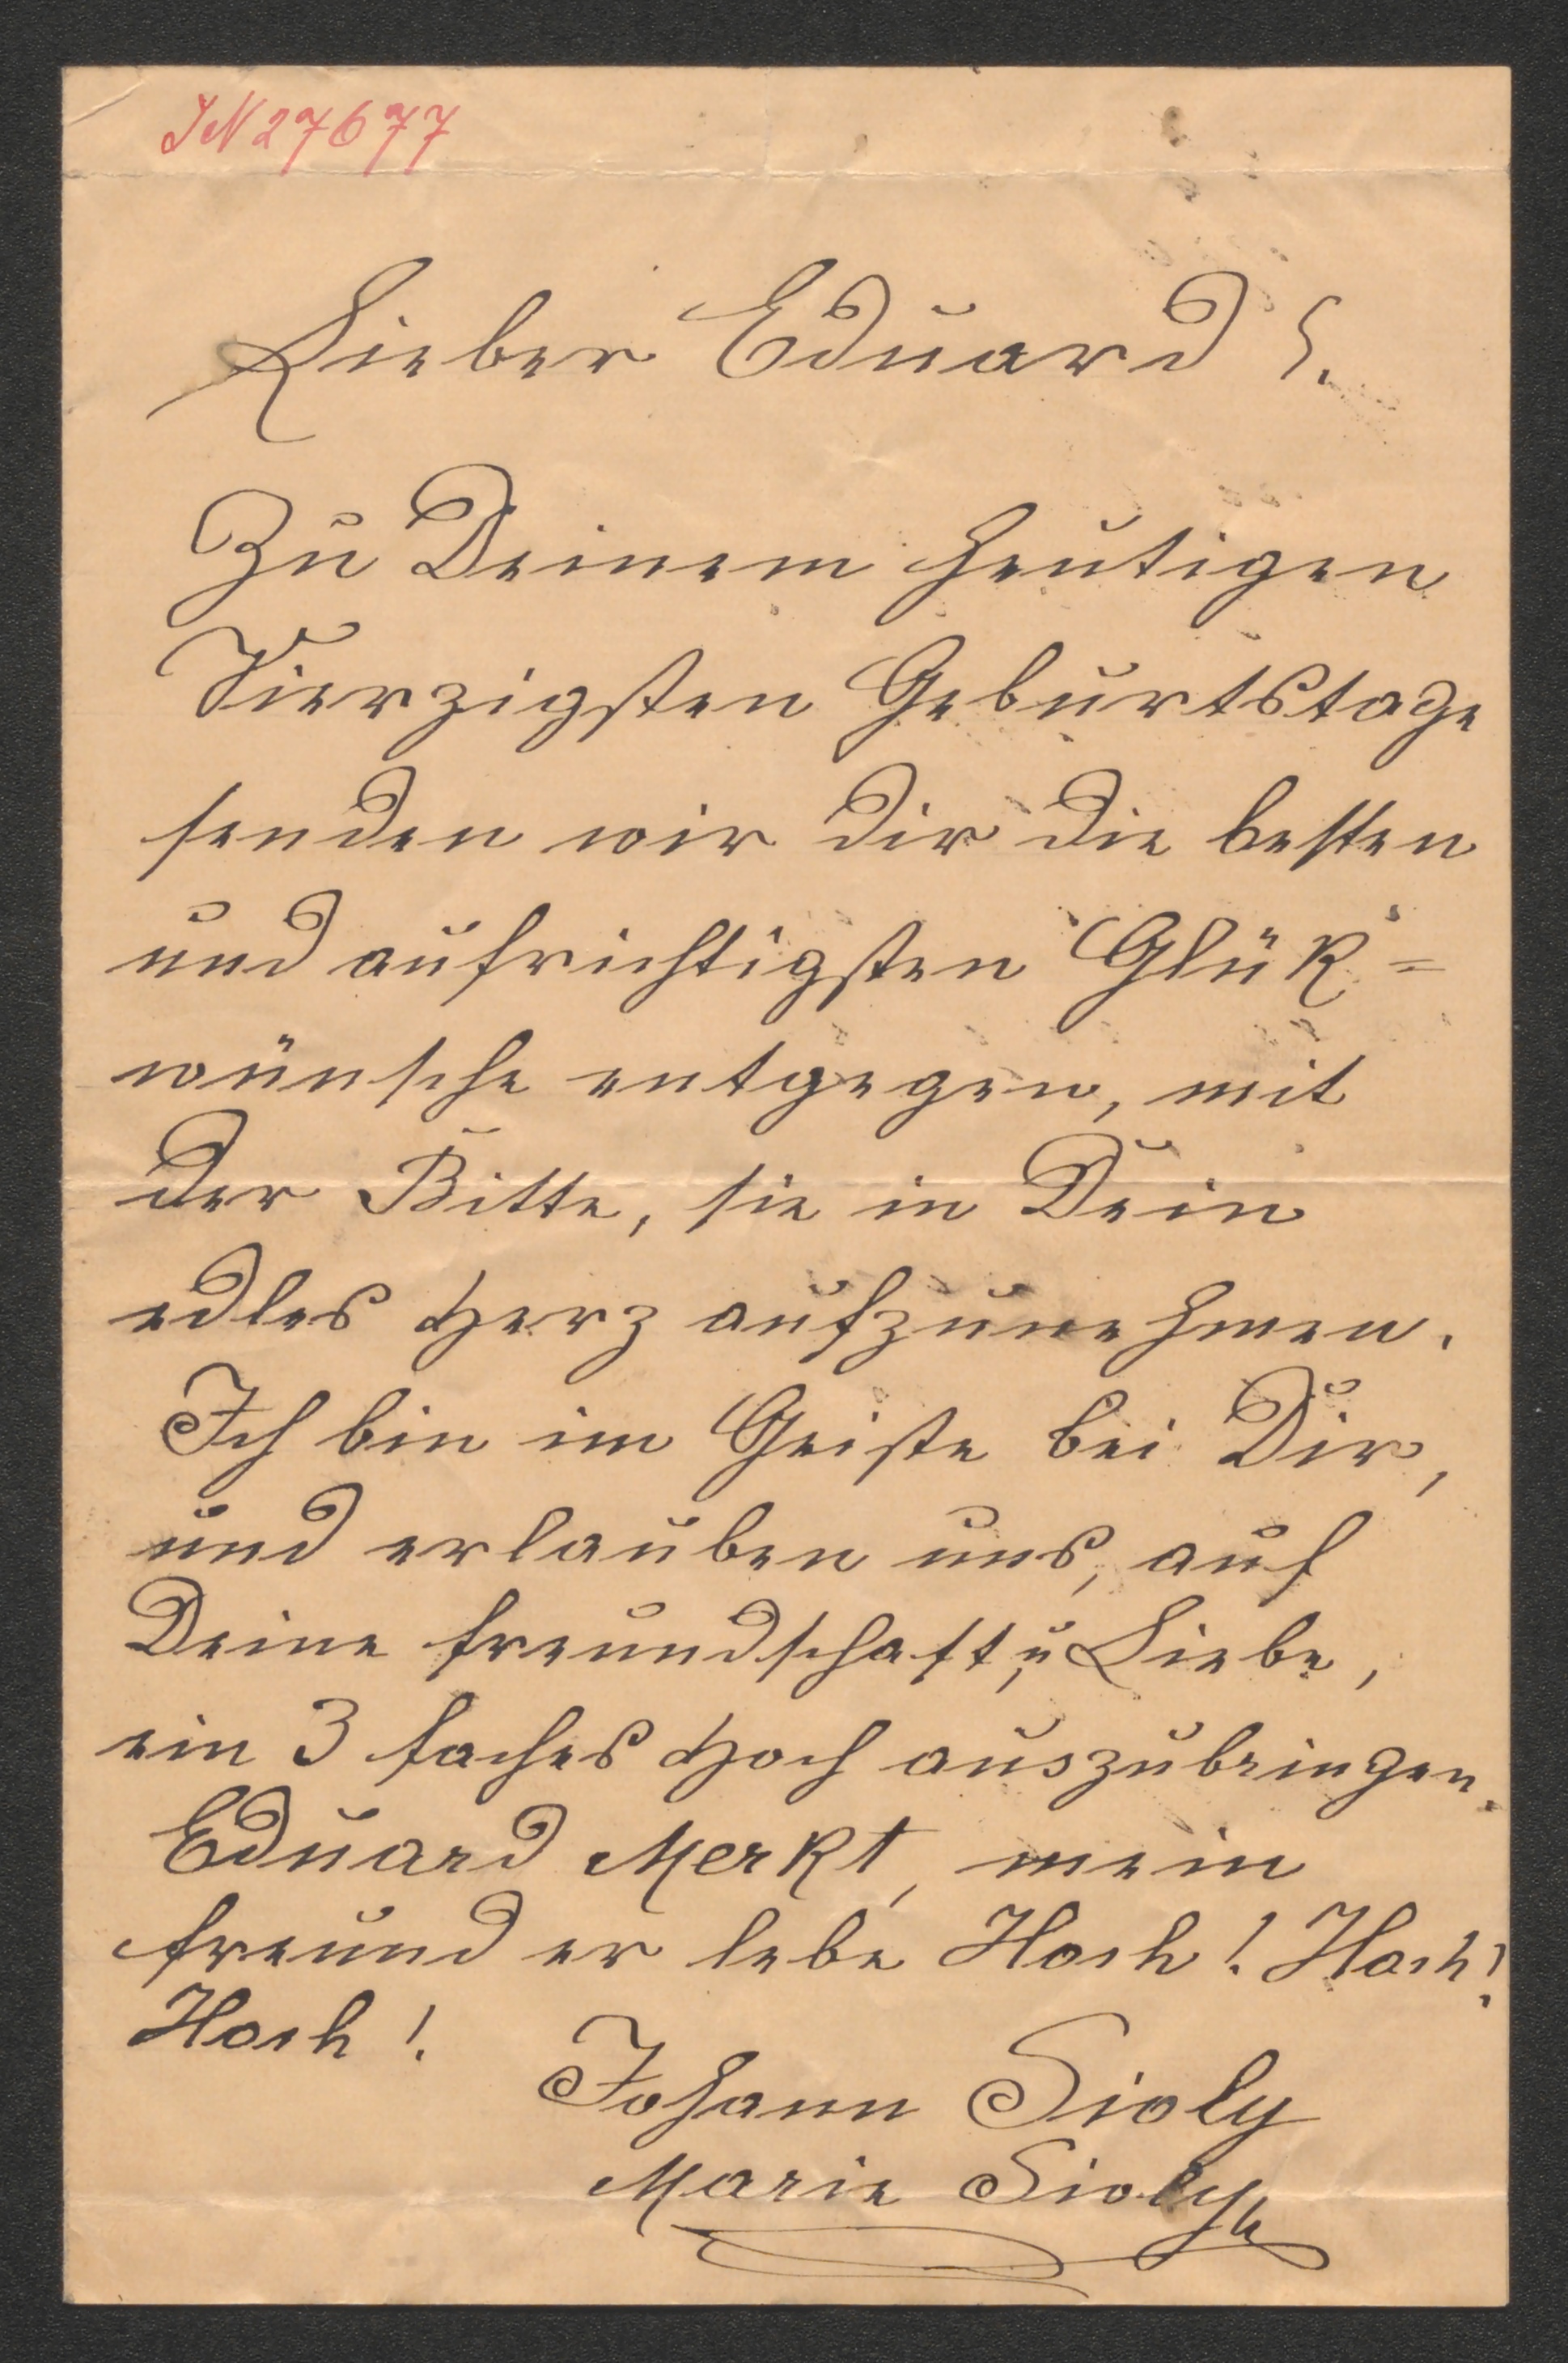 IN 27677
Lieber Eduard!
Zu Deinem heutigen
Vierzigsten Geburtstage
senden wir dir die besten
und aufrichtigsten Glük=
wünsche entgegen, mit
der Bitte, sie in Dein
edles Herz aufzunehmen.
Ich bin im Geiste bei Dir,
und erlauben uns, auf
Deine Freundschaft, u Liebe,
ein 3 faches Hoch auszubringen.
Eduard Merkt, mein
Freund er lebe Hoch! Hoch!
Hoch!
Johann Sioly
Marie Sioly